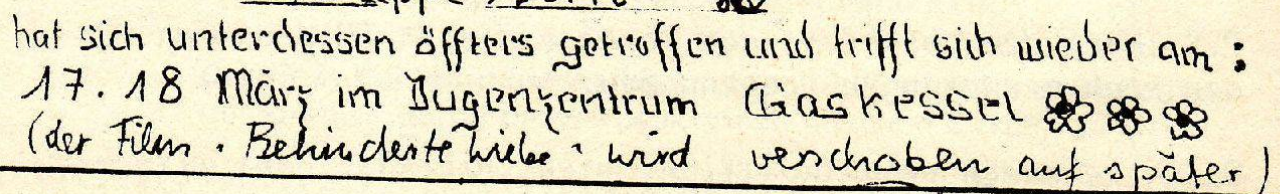 hat sich unterdessen öffters getroffen und trifft sich wieder am:
17. 18 März im Jugenzentrum Gaskessel
(der Film "Behinderte Liebe" wird verschoben auf später)